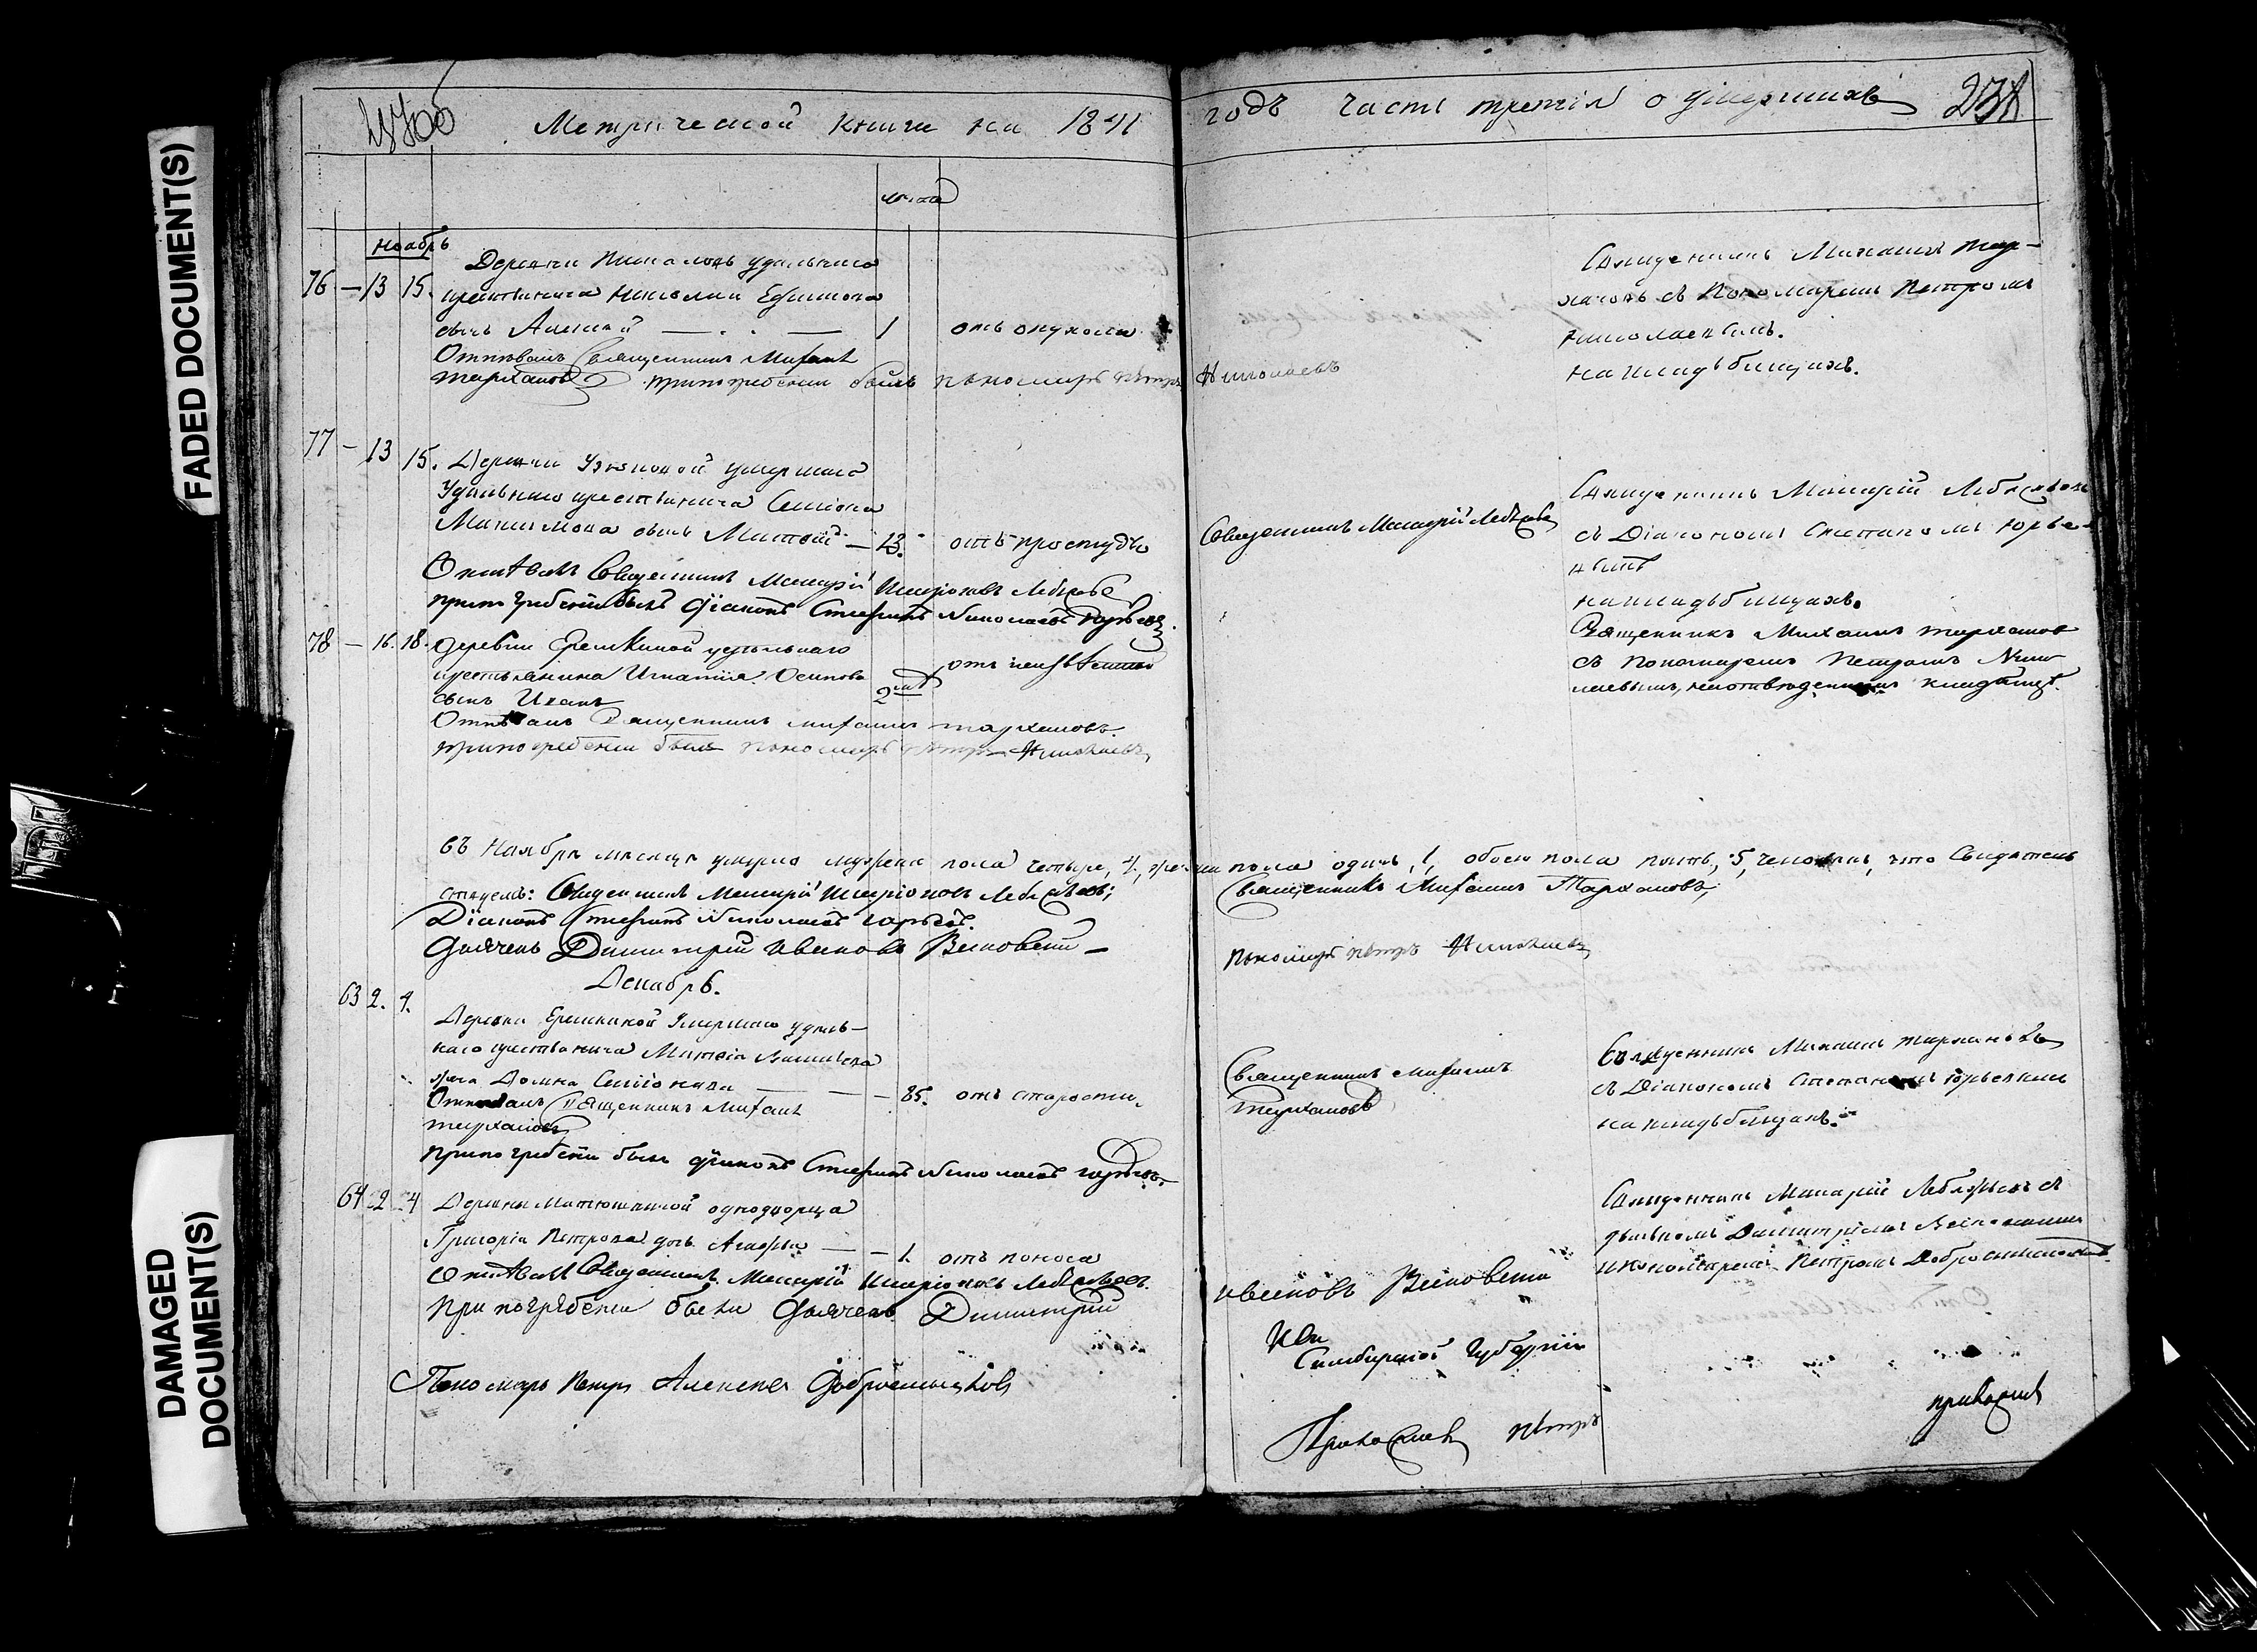 FADED DOCUMENT(S)
DAMAGED
DOCUMENT(S)
Метрической книги на 1841
годъ часть третія о умершихъ
238
лѣта
Ноябрь
76 — 13 15. Деревни удѣльнаго
крестьянина Николая Ефимова
сынъ Алексѣй — . — 1 отъ опухоли
Отпѣвалъ Священникъ Михаилъ
Тархановъ при погребеніи былъ пономарь Петръ Николаевъ
Священникъ Михаилъ Тар-
хановъ съ Пономаремъ Петромъ
Николаевымъ.
на кладбищахъ.
77 — 13 15. Деревни умершаго
Удѣльнаго крестьянина Семіона
Максимова сынъ Матвѣй — 13. отъ простуды
Отпѣвалъ Священникъ Макарій Иларіоновъ Лебяжьевъ
при погребеніи былъ діаконъ Стефанъ Николаевъ Юрьевъ.
Священникъ Макарій Лебяжьевъ
Священникъ Макарій Лебяжьевъ
съ Діакономъ Степаномъ Юрье-
вымъ
на кладбищахъ.
78 — 16. 18. деревни Еремкиной удѣльнаго
крестьянина Игнатія Осипова
сынъ Иванъ 2 отъ неизвѣстной
Отпѣвалъ Священникъ Михаилъ Тархановъ.
при погребеніи былъ пономарь Петръ Николаевъ
Священникъ Михаилъ Тархановъ
съ пономаремъ Петромъ Нико
лаевымъ, на кладбищѣ.
въ Ноябрѣ мѣсяцѣ умерло мужеска пола четыре, 4, женска пола одинъ, 1, обоего пола пять, 5, человекъ, что Свидѣтель
ствуемъ: Священникъ Макарій Иларіоновъ Лебяжьевъ;
Священникъ Михаилъ Тархановъ;
Діаконъ Стефанъ Николаевъ Юрьевъ.
Дьячекъ Димитрій Ивановъ —
пономарь Петръ Николаевъ
Декабрь.
63 2. 4.
Деревни Еремкиной Умершаго удѣль-
наго крестьянина Матвѣя Васильева
жена Домна Семіонова — — 85. отъ старости.
Отпѣвалъ Священникъ Михаилъ
Тархановъ
при погребеніи былъ діаконъ Стефанъ Николаевъ Юрьевъ.
Священникъ Михаилъ
Тархановъ
Священникъ Михаилъ Тархановъ
съ Діакономъ Степаномъ Юрьевымъ
на кладбищахъ.
64 2 4 Деревни Матюшкиной однодворца
Григорія Петрова дочь Агафья — — 1. отъ поноса
Отпѣвалъ Священникъ Макарій Иларіоновъ Лебяжьевъ.
При погребеніи были Дьячекъ Димитрій
Ивановъ
Священникъ Макарій Лебяжьевъ съ
дьячкомъ Димитріемъ
и пономаремъ Петромъ Добросмысловымъ
Пономарь Петръ Алексѣевъ Добросмысловъ
Симбирской Губерніи
Петръ